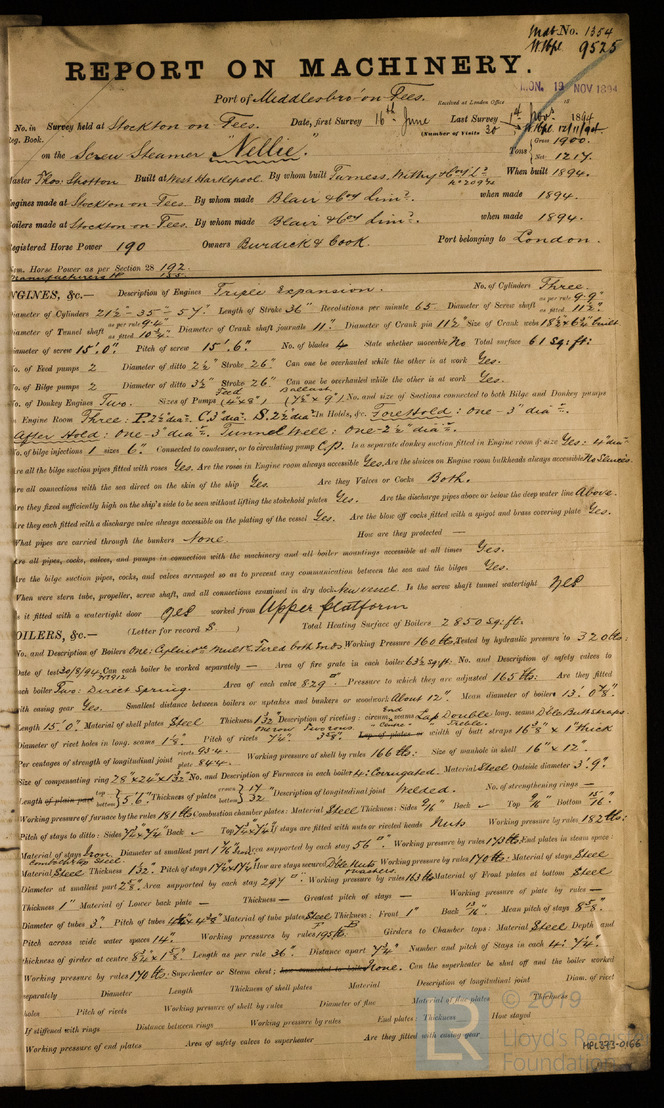 Mdb. No. 1354
W.Hpl 9525
REPORT ON MACHINERY.
MON. 19 NOV 1894
Port of Middlesbro' on Tees.
Received at London Office 18
No. in Survey held at Stockton on Tees. Date, first Survey 16th June Last Survey 1st Nov. 1894
Reg. Book. (Number of Visits 30 W.Hpl. 12/11/94
on the Screw Steamer "Nellie". Tons { Gross 1900. Net 1217.
Master Thos. Shotton Built at West Hartlepool. By whom built Furness, Withy & Coy Ld. When built 1894.
Engines made at Stockton on Tees. By whom made Blair & Coy Limd. when made 1894.
Boilers made at Stockton on Tees. By whom made Blair & Coy Limd. when made 1894.
Registered Horse Power 190 Owners Burdick & Cook. Port belonging to London.
Nom. Horse Power as per Section 28 192.
ENGINES, &c.— Description of Engines Triple Expansion. No. of Cylinders Three.
Diameter of Cylinders 21½"- 35"- 57" Length of Stroke 36" Revolutions per minute 65 Diameter of Screw shaft as per rule 9.9" as fitted 11½"
Diameter of Tunnel shaft as per rule 9.4" as fitted 10¾" Diameter of Crank shaft journals 11" Diameter of Crank pin 11½" Size of Crank webs built
Diameter of screw 15'.0" Pitch of screw 15'.6" No. of blades 4 State whether moveable No Total surface 61 sq: ft:
No. of Feed pumps 2 Diameter of ditto 2½" Stroke 26" Can one be overhauled while the other is at work Yes.
No. of Bilge pumps 2 Diameter of ditto 3½" Stroke 26" Can one be overhauled while the other is at work Yes.
No. of Donkey Engines Two. Sizes of Pumps Feed (4"x8") Ballast (7½"x9") No. and size of Suctions connected to both Bilge and Donkey pumps
In Engine Room Three: P. 2½" diar. C. 3" diar. S. 2½" diar. In Holds, &c. Fore Hold: one - 3" diar.
After Hold: one - 3" diar. Tunnel Well: one - 2½" diar.
No. of bilge injections 1 sizes 6" Connected to condenser, or to circulating pump C.P. Is a separate donkey suction fitted in Engine room & size Yes: 4" diar
Are all the bilge suction pipes fitted with roses Yes. Are the roses in Engine room always accessible Yes. Are the sluices on Engine room bulkheads always accessible No Sluices.
Are all connections with the sea direct on the skin of the ship Yes. Are they Valves or Cocks Both.
Are they fixed sufficiently high on the ship's side to be seen without lifting the stokehold plates Yes. Are the discharge pipes above or below the deep water line Above.
Are they each fitted with a discharge valve always accessible on the plating of the vessel Yes. Are the blow off cocks fitted with a spigot and brass covering plate Yes.
What pipes are carried through the bunkers None. How are they protected —
Are all pipes, cocks, valves, and pumps in connection with the machinery and all boiler mountings accessible at all times Yes.
Are the bilge suction pipes, cocks, and valves arranged so as to prevent any communication between the sea and the bilges Yes.
When were stern tube, propeller, screw shaft, and all connections examined in dry dock New vessel. Is the screw shaft tunnel watertight Yes
Is it fitted with a watertight door yes worked from Upper platform
BOILERS, &c.— (Letter for record S ) Total Heating Surface of Boilers 2850 sq: ft.
No. and Description of Boilers One: Cylindl. Mult. Fired both Ends Working Pressure 160 lbs. Tested by hydraulic pressure to 320 lbs:
Date of test 30/8/94. Can each boiler be worked separately — Area of fire grate in each boiler 63½ sq ft: No. and Description of safety valves to
each boiler Two: Direct Spring. Area of each valve 8.29" Pressure to which they are adjusted 165 lbs: Are they fitted
with easing gear Yes. Smallest distance between boilers or uptakes and bunkers or woodwork About 12". Mean diameter of boilers 13'.0⅞".
Length 15'.0" Material of shell plates Steel Thickness 1 3/32" Description of riveting: circum. seams End Lap Double long. seams Dble Buttstraps.
Diameter of rivet holes in long. seams 1⅛" Pitch of rivets 7¾" 3⅝" width of butt straps 16⅜" x 1" thick
Per centages of strength of longitudinal joint rivets 93.4 plate 84.4 Working pressure of shell by rules 166 lbs: Size of manhole in shell 16" x 12".
Size of compensating ring 28"x24"x1 3/32" No. and Description of Furnaces in each boiler 4: Corrugated. Material Steel Outside diameter 3'.9".
Length of plain part top bottom 5'.6" Thickness of plates crown bottom 17/32" Description of longitudinal joint Welded. No. of strengthening rings —
Working pressure of furnace by the rules 181 lbs Combustion chamber plates: Material Steel Thickness: Sides 9/16" Back ✓ Top 9/16" Bottom 15/16".
Pitch of stays to ditto: Sides 7½"x7½" Back ✓ Top 7½"x7½" If stays are fitted with nuts or riveted heads Nuts Working pressure by rules 182 lbs:
Material of stays Iron. Diameter at smallest part Area supported by each stay 56" Working pressure by rules 173 lbs End plates in steam space:
Material Steel Thickness 1 3/32" Pitch of stays How are stays secured Dble Nuts washers. Working pressure by rules 170 lbs: Material of stays Steel
Diameter at smallest part 2⅝" Area supported by each stay 297" Working pressure by rules 163 lbs Material of Front plates at bottom Steel
Thickness 1" Material of Lower back plate — Thickness — Greatest pitch of stays — Working pressure of plate by rules —
Diameter of tubes 3" Pitch of tubes Material of tube plates Steel Thickness: Front 1" Back 13/16" Mean pitch of stays 8⅝".
Pitch across wide water spaces 14". Working pressures by rules Girders to Chamber tops: Material Steel Depth and
thickness of girder at centre 8¼"x1⅝" Length as per rule 36" Distance apart 7¾" Number and pitch of Stays in each 4: 7¼".
Working pressure by rules 170 lbs: Superheater or Steam chest; None. Can the superheater be shut off and the boiler worked
separately Diameter Length Thickness of shell plates Material Description of longitudinal joint Diam. of rivet
holes Pitch of rivets Working pressure of shell by rules Diameter of flue Material of flue plates Thickness
If stiffened with rings Distance between rings Working pressure by rules End plates: Thickness How stayed
Working pressure of end plates Area of safety valves to superheater Are they fitted with easing gear
© 2019
LR
Lloyd's Register
Foundation
HPL373-0166